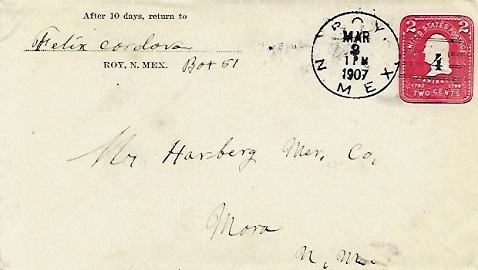 After 10 days, return to
Felix Cordova
ROY, N. MEX. Box 61
ROY
N. MEX
MAR
2
1 PM
1907
2 UNITED STATES POSTAGE 2
4
TWO CENTS
Mr Harzberg Mer, Co,
Mora
N. M.